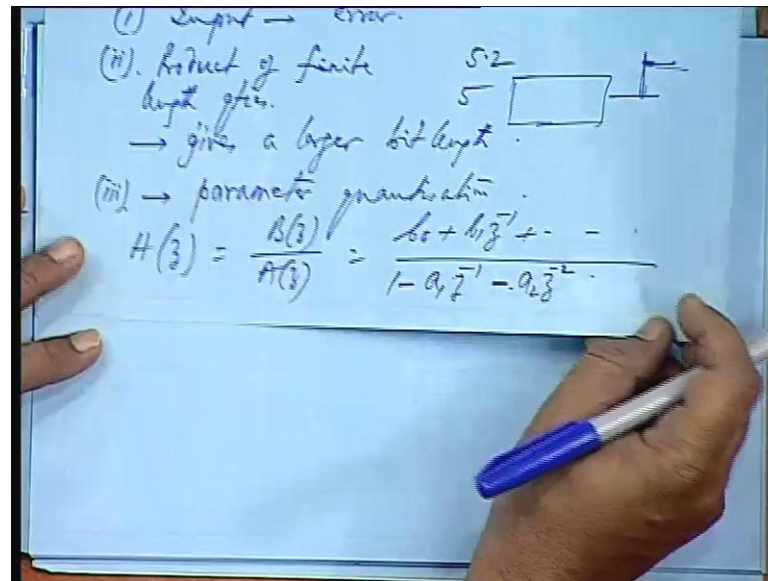 (i) Input → error.
(ii). Product of finite
length
→ gives a larger bit length.
5.2
5
(iii) → parameter quantization.
H(z) = B(z) / A(z) = b₀ + b₁z⁻¹ + - - . / 1 - a₁z⁻¹ - a₂z⁻² .